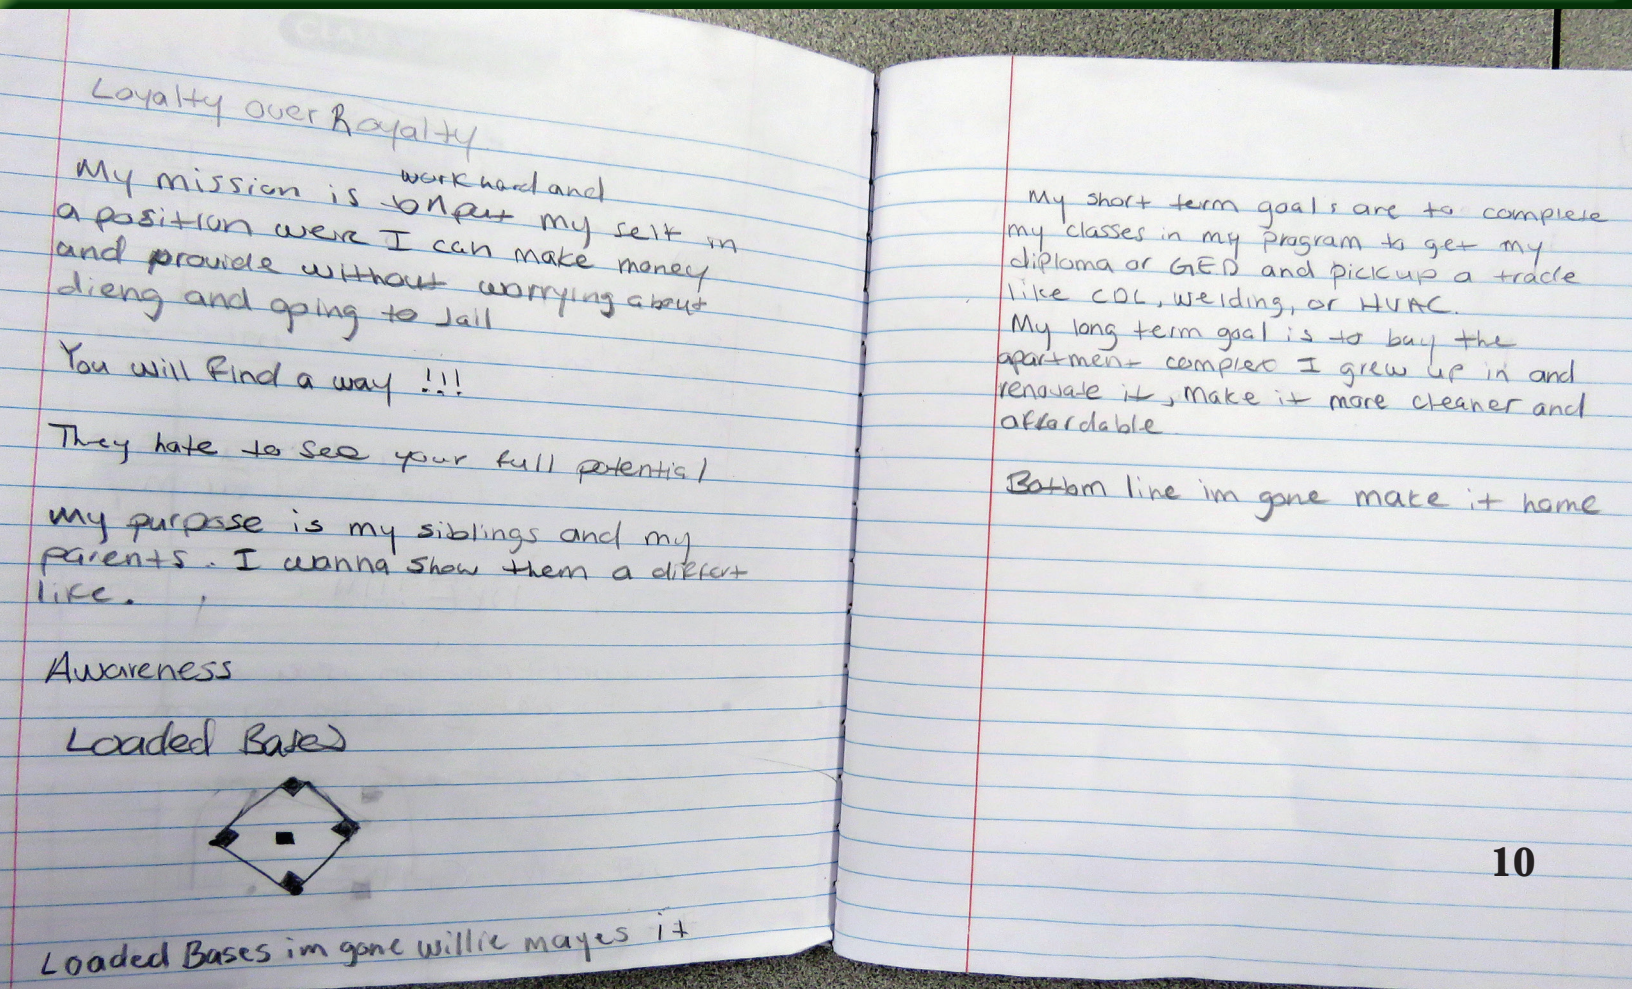 Loyalty over Royalty
My mission is to work hard and
put my self in
a position were I can make money
and provide without worrying about
dieng and going to Jail
You will find a way !!!
They hate to see your full potential
My purpose is my siblings and my
parents. I wanna show them a
life.
Awareness
Loaded Bases
Loaded Bases im gone willie mayes it
My short term goals are to complete
my classes in my program to get my
diploma or GED and pickup a trade
like CDL, welding, or HVAC.
My long term goal is to buy the
apartment complex I grew up in and
renovate it, make it more cleaner and
affordable
Bottom line im gone make it home
10